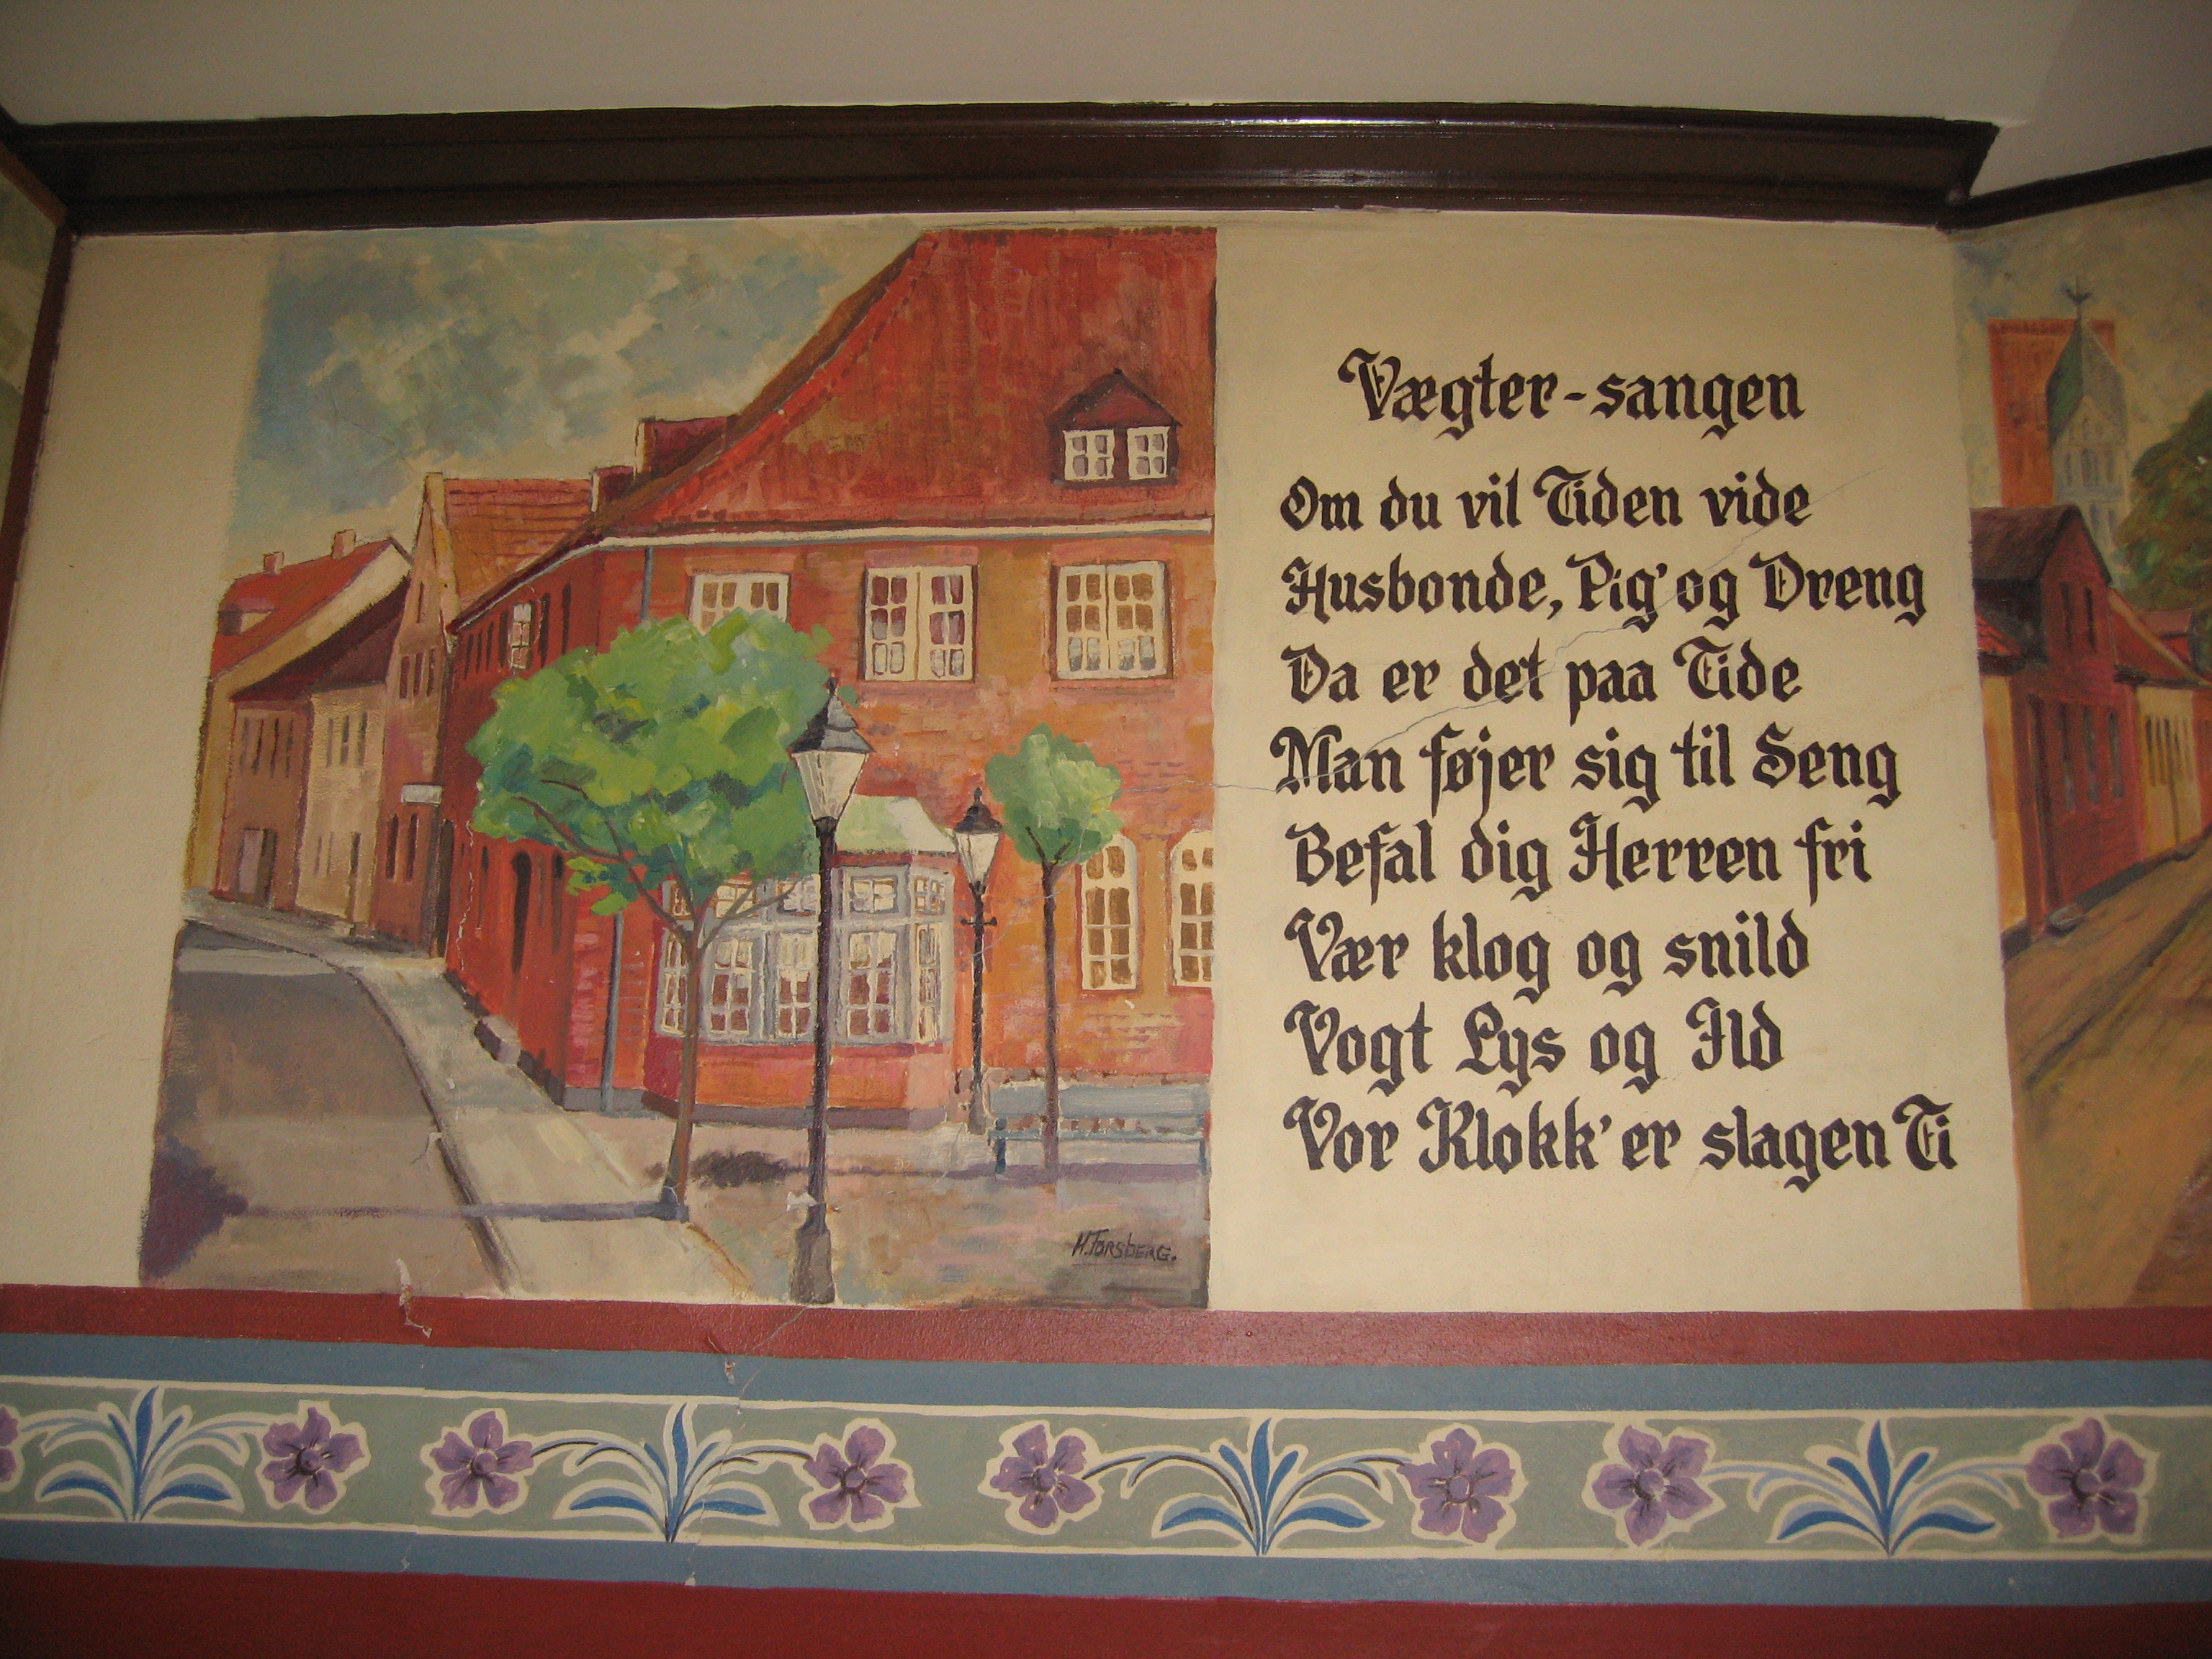 Vægter-sangen
Om du vil Tiden vide
Husbonde, Pig' og Dreng
Da er det paa Tide
Man føjer sig til Seng
Befal dig Herren fri
Vær klog og snild
Vogt Lys og Ild
Vor Klokk' er slagen Ti
H. Forsberg.